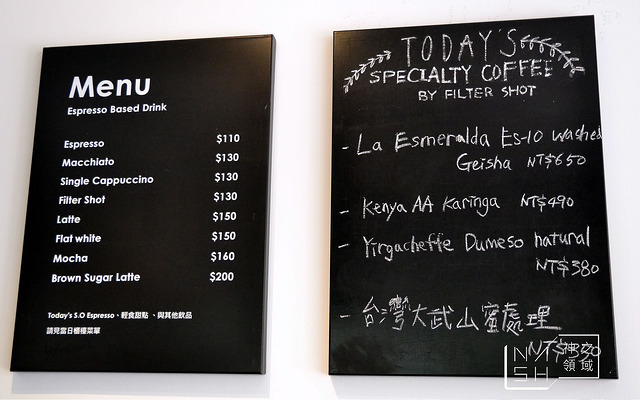 Menu
Espresso Based Drink
Espresso $110
Macchiato $130
Single Cappuccino $130
Filter Shot $130
Latte $150
Flat white $150
Mocha $160
Brown Sugar Latte $200
Today's S.O Espresso、輕食甜點、與其他飲品
請見當日櫃檯菜單
TODAY'S
SPECIALTY COFFEE
BY FILTER SHOT
- La Esmeralda Es-10 washed
Geisha NT$650
- Kenya AA Karinga NT$490
- Yirgacheffe Dumeso natural
NT$380
- 台灣大武山蜜處理
NT$
領域